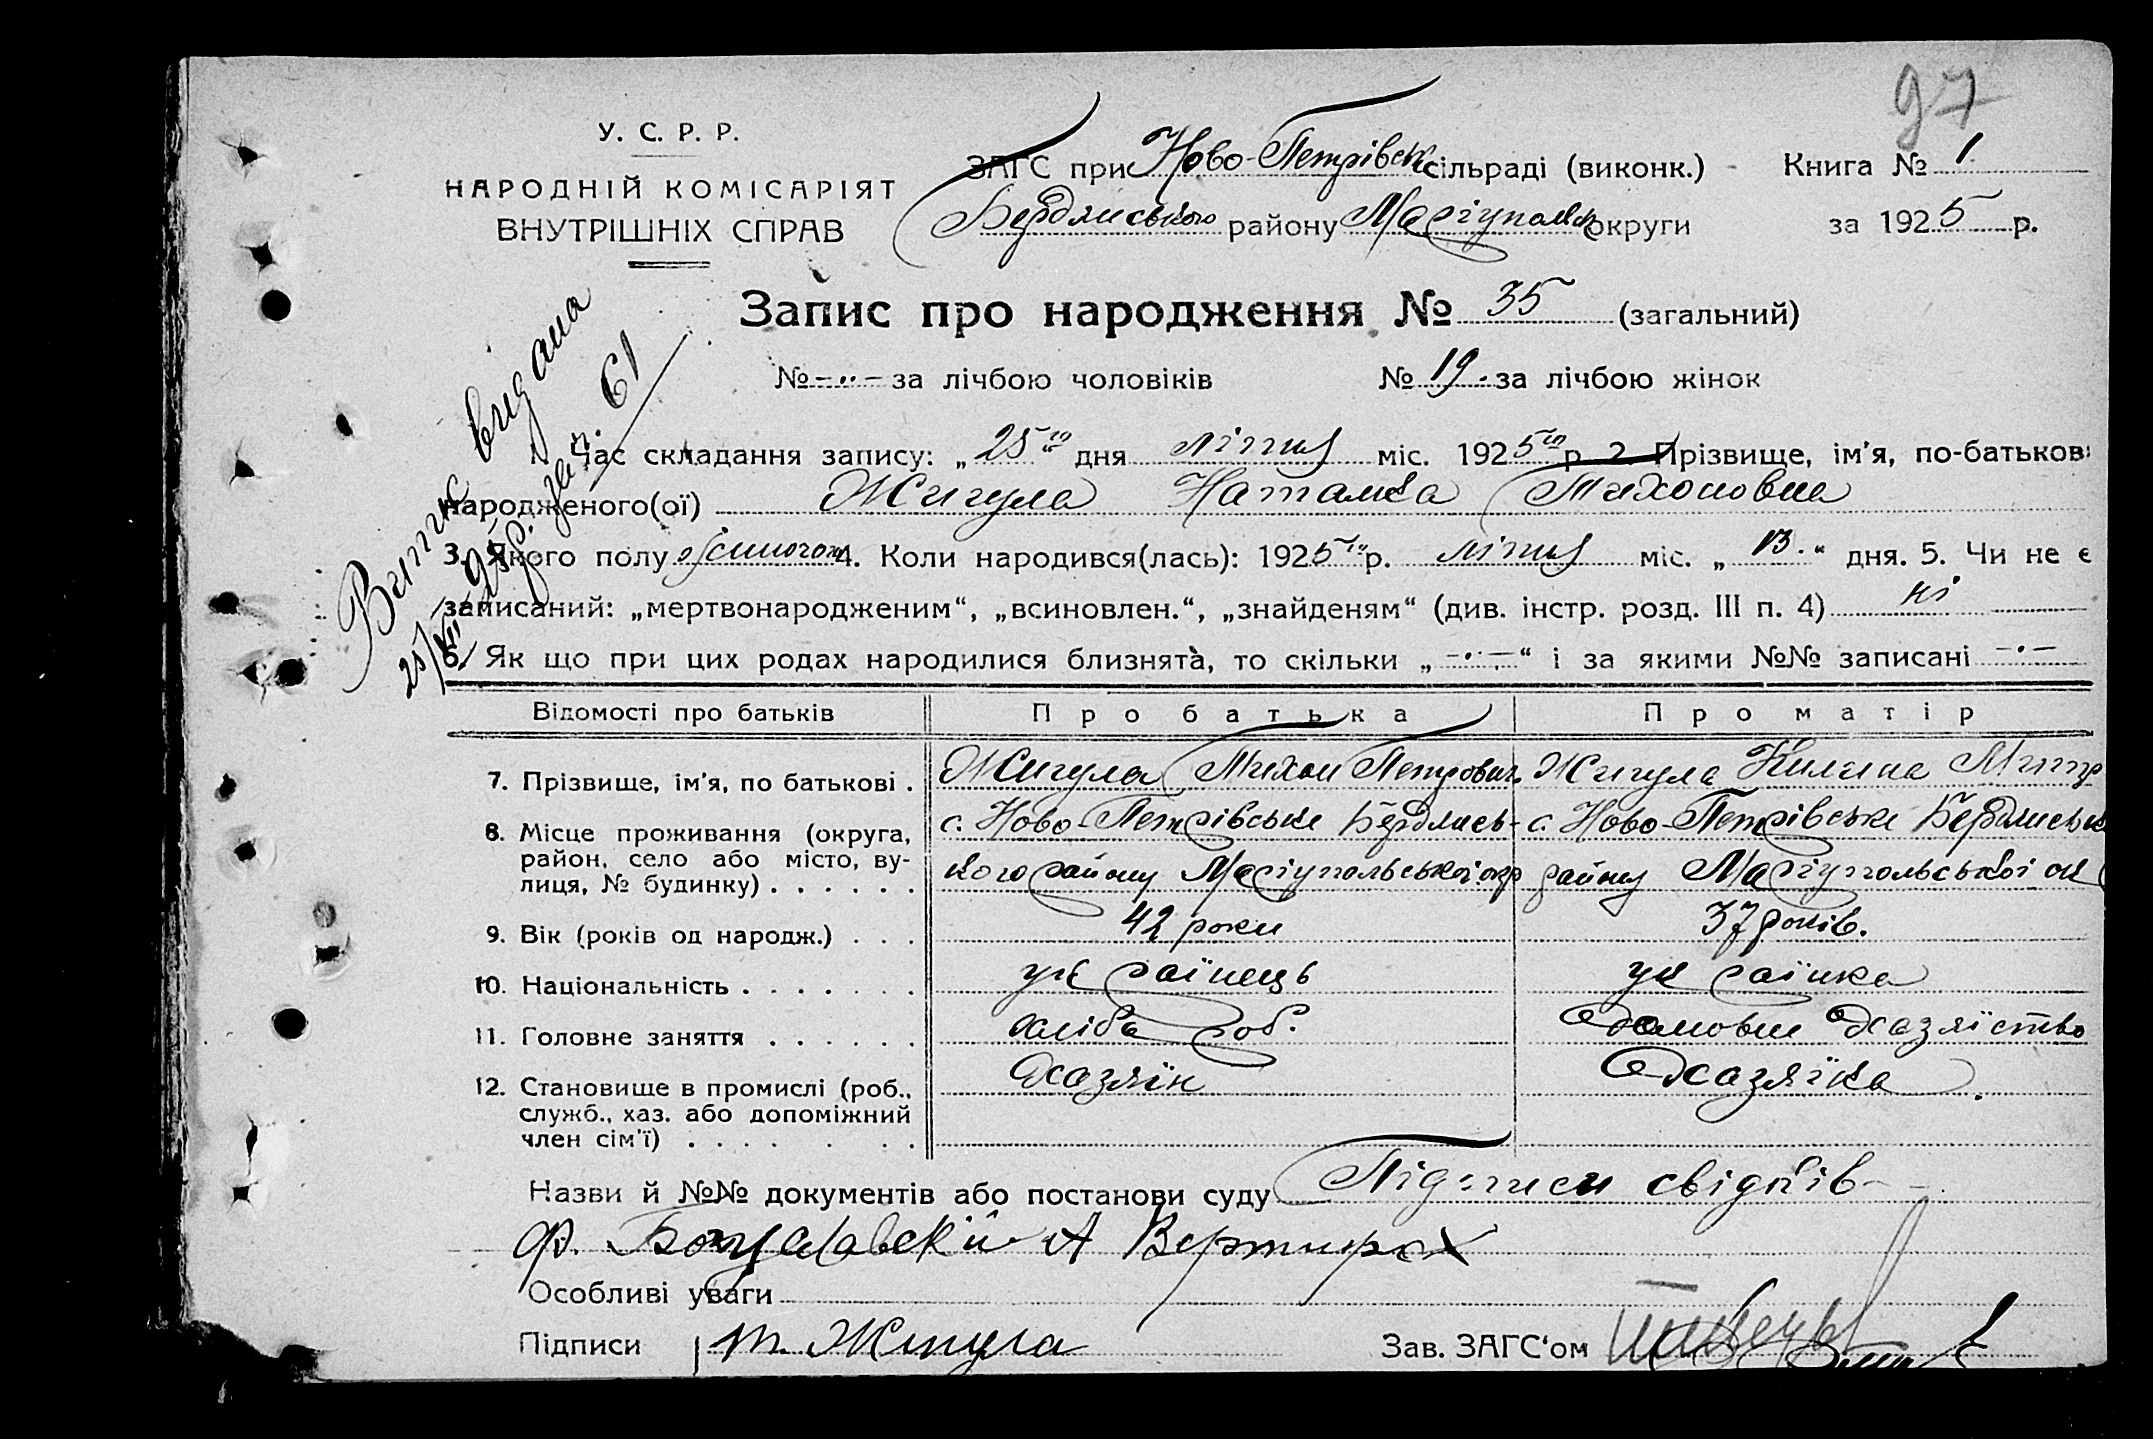 97
У. С. Р. Р.
НАРОДНІЙ КОМІСАРІЯТ
ВНУТРІШНІХ СПРАВ
ЗАГС при Ново-Петрівск сільраді (виконк.) Книга № 1
Бердянського району Маріупольськ округи за 1925 р.
Запис про народження № 35 (загальний)
№ -..- за лічбою чоловіків № 19. за лічбою жінок
Витяг видана
25/VII 25р. за № 61
1. Час складання запису: „25го“ дня липня міс. 1925го р. 2. Прізвище, ім'я, по-батькові
народженого(ої) Жигула Наталка Тихоновна
3. Якого полу жіночого 4. Коли народився(лась): 1925го р. липня міс. „13.“ дня. 5. Чи не є
записаний: „мертвонародженим“, „всиновлен.“, „знайденям“ (див. інстр. розд. III п. 4) ні
6. Як що при цих родах народилися близнята, то скільки „-.-“ і за якими №№ записані -.-
Відомості про батьків Про батька Про матір
7. Прізвище, ім'я, по батькові . Жигула Тихон Петрович. Жигула Килина Митр
8. Місце проживання (округа, район, село або місто, вулиця, № будинку) . . . . . . с. Ново-Петрівське Бердянсь- с. Ново-Петрівське Бердянськ
кого району Маріупольської окр району Маріупольської ок
9. Вік (років од народж.) . . . 42 роки 37 років.
10. Національність . . . . . . . українець українка
11. Головне заняття . . . . . . хлібороб. домовне хазяїство
12. Становище в промислі (роб., служб., хаз. або допоміжний член сім'ї) . . . . . . . хазяїн хазяїка
Назви й №№ документів або постанови суду Підписи свідків
Ф. Богуславскій А Вертирах
Особливі уваги
Підписи Т. Жигула Зав. ЗАГС'ом